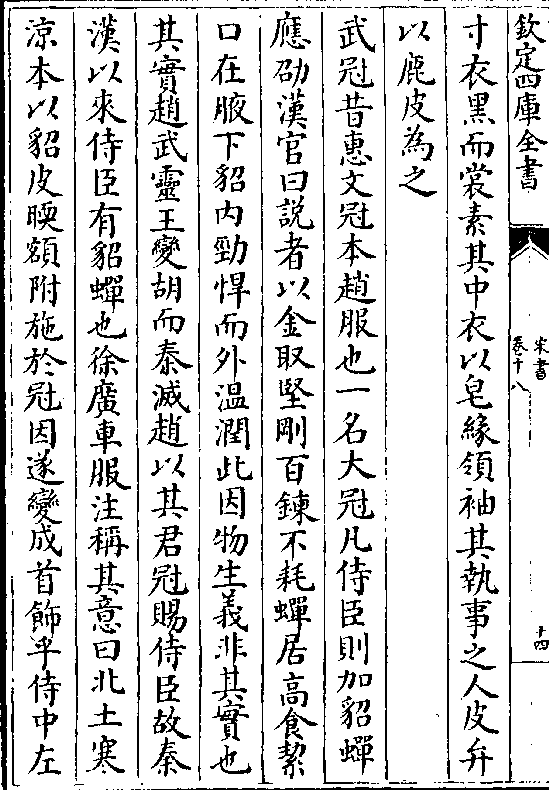 欽定四庫全書
宋書
卷十八
十四
寸衣黑而裳素其中衣以皂緣領袖其執事之人皮弁
以鹿皮為之
武冠昔惠文冠本趙服也一名大冠凡侍臣則加貂蟬
應劭漢官曰說者以金取堅剛百鍊不耗蟬居高食潔
口在腋下貂內勁悍而外溫潤此因物生義非其實也
其實趙武靈王變胡而秦滅趙以其君冠賜侍臣故秦
漢以來侍臣有貂蟬也徐廣車服注稱其意曰北土寒
涼本以貂皮暖額附施於冠因遂變成首飾乎侍中左